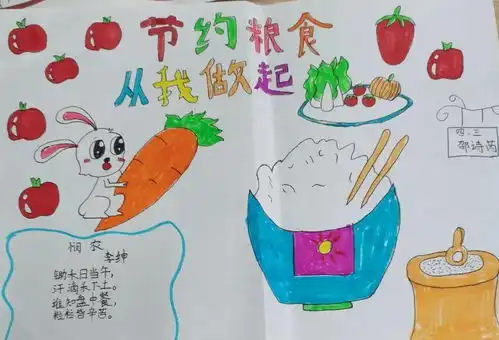 节约粮食
从我做起
四.三
邵诗芮
悯农
李绅
锄禾日当午,
汗滴禾下土。
谁知盘中餐,
粒粒皆辛苦。